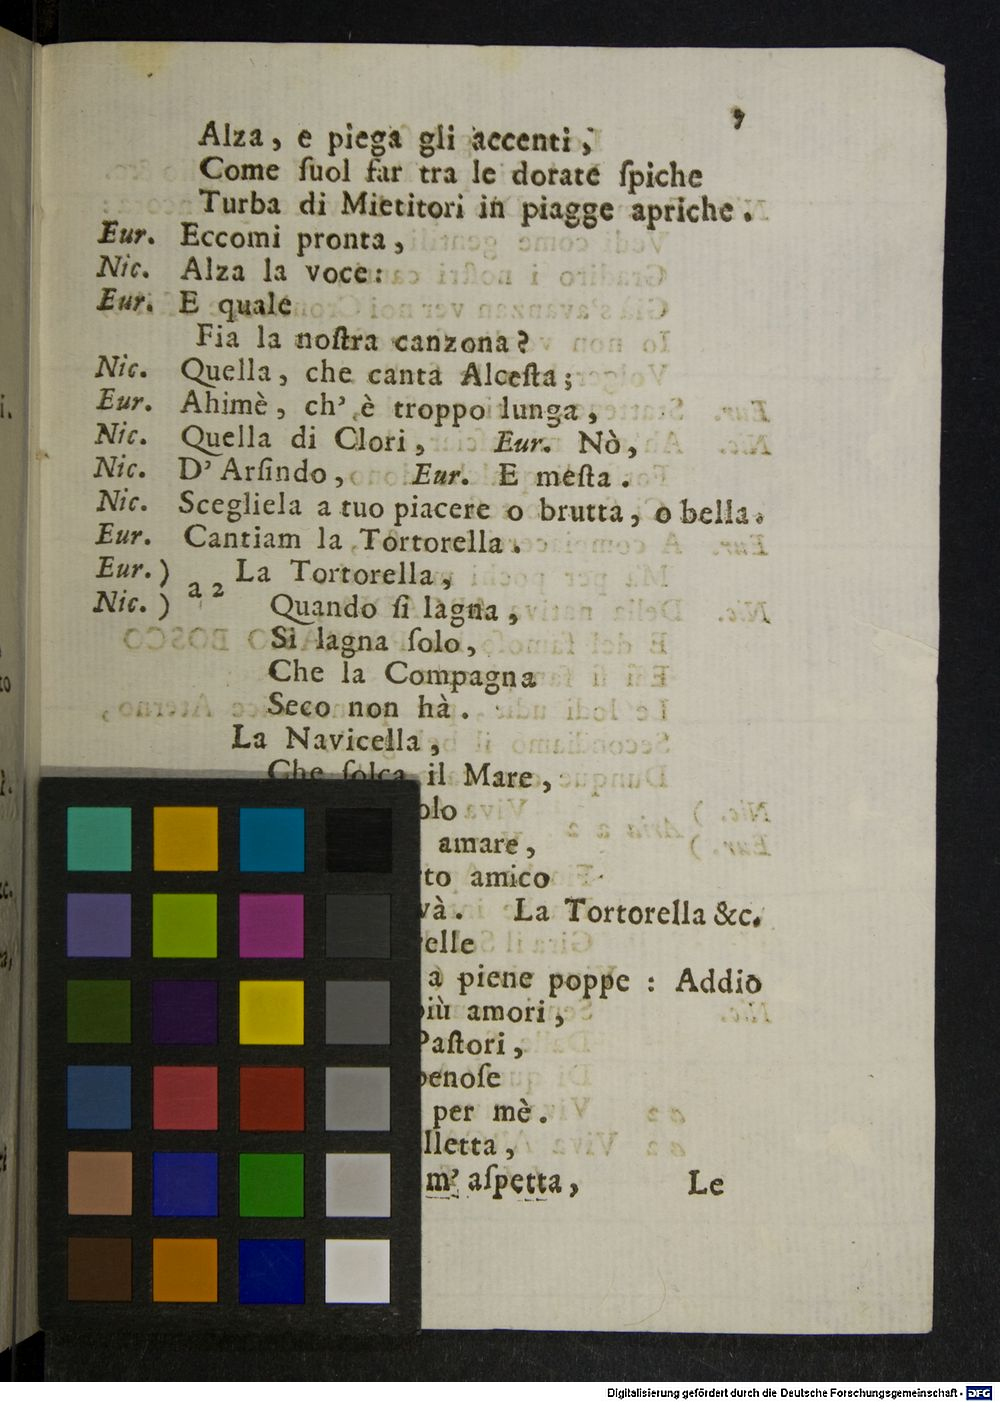 9
Alza, e piega gli accenti,
Come ſuol far tra le dorate ſpiche
Turba di Mietitori in piagge apriche.
Eur. Eccomi pronta,
Nic. Alza la voce:
Eur. E quale
Fia la noſtra canzona?
Nic. Quella, che canta Alceſta;
Eur. Ahimè, ch' è troppo lunga,
Nic. Quella di Clori, Eur. Nò,
Nic. D' Arſindo, Eur. E meſta.
Nic. Scegliela a tuo piacere o brutta, o bella.
Eur. Cantiam la Tortorella.
Eur.) a 2 La Tortorella,
Nic. ) Quando ſi lagna,
Si lagna ſolo,
Che la Compagna
Seco non hà.
La Navicella,
Che ſolca il Mare,
olo
amare,
to amico
và. La Tortorella &c.
elle
a piene poppe : Addio
più amori,
Paſtori,
penoſe
per mè.
lletta,
m' aſpetta, Le
Digitalisierung gefördert durch die Deutsche Forschungsgemeinschaft - DFG